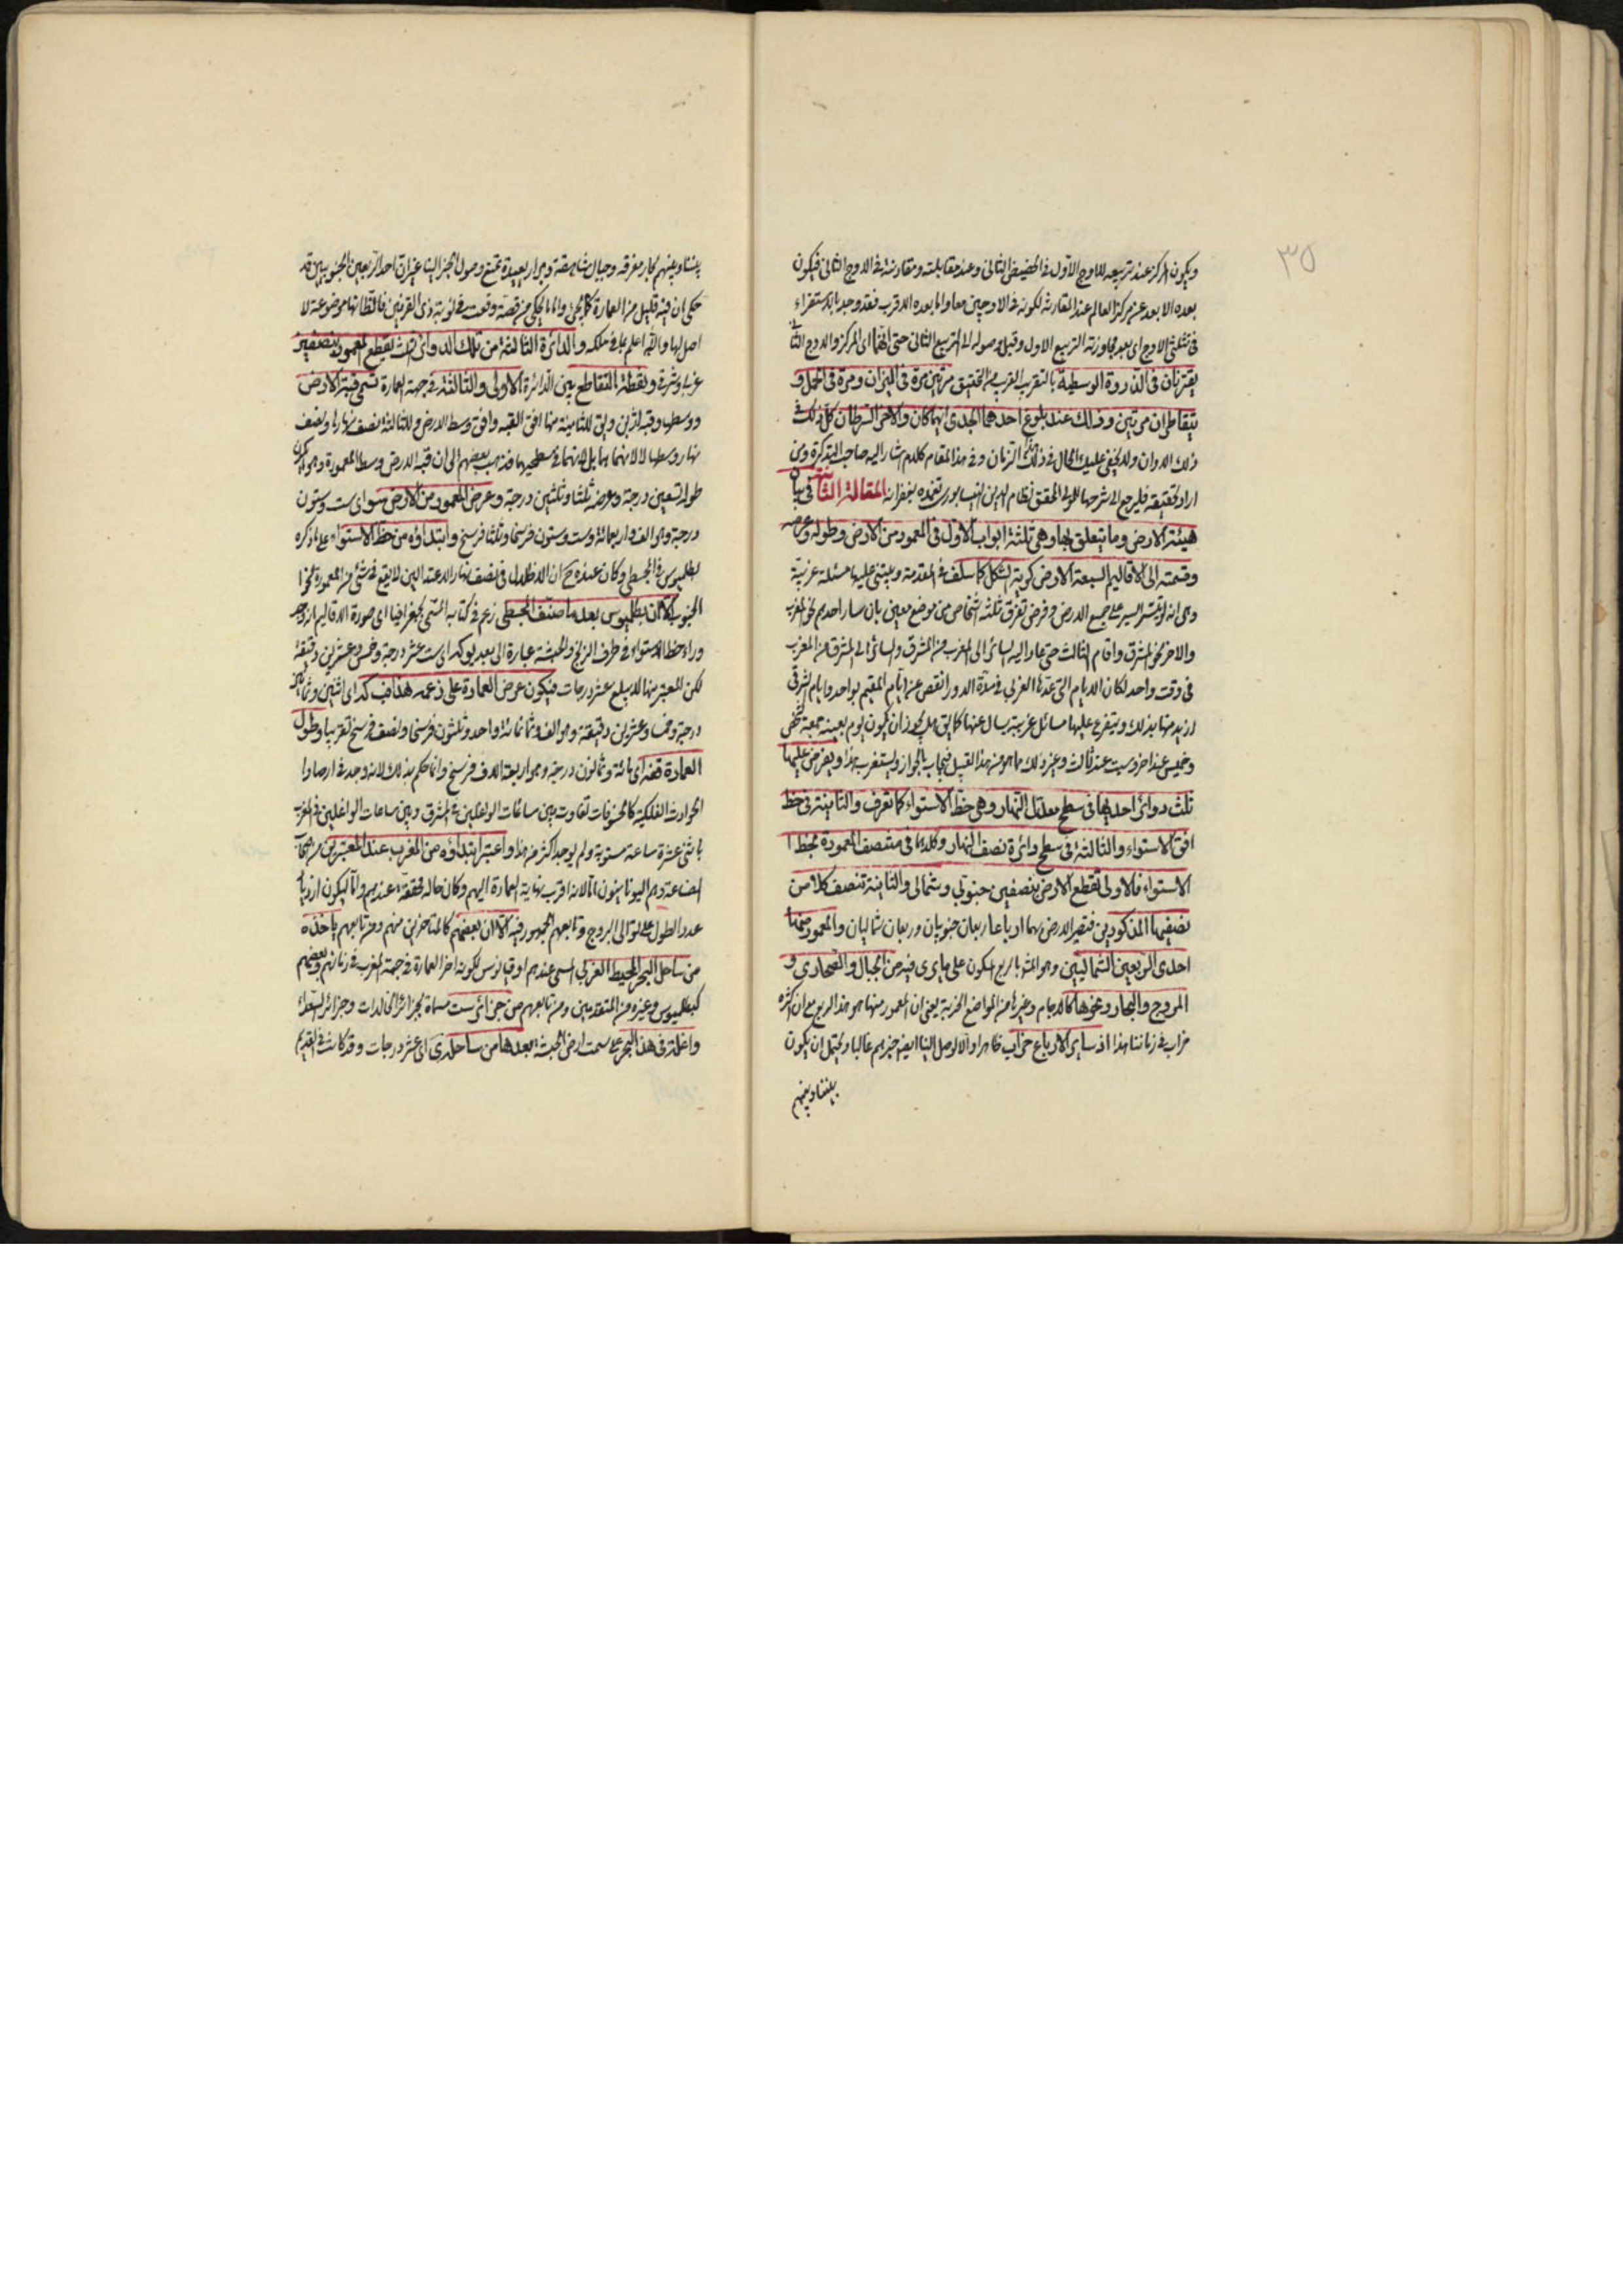 ٣٥
ويكون المركز عند تربيعه للاوج الاول في الحضيض الثاني وعند مقابلته ومقارنته في الاوج الثاني فيكون
بعده الابعد عن مركز العالم عند المقارنة لكونه في الاوجين معا واما بعده الاقرب فقد وجد بالاستقراء
في تثليثي الاوج اي بعد مجاوزته التربيع الاول وقبل وصوله الى التربيع الثاني حتى انهما اي المركز والاوج
يقترنان في الذروة الوسطية بالتقريب القريب من التحقيق مرتين مرة في الميزان ومرة في الحمل و
يتقاطران مرتين وذلك عند بلوغ احدهما الجدي ايهما كان والاخر السرطان كل ذلك في
ذلك الاوان ولا يخفى عليك الحال في ذلك الزمان وفي هذا المقام كلام اشار اليه صاحب التذكرة ومن
اراد تحقيقه فليرجع الى شرحها للمولى المحقق نظام الدين النيسابوري تغمده بغفرانه المقالة الثانية في بيان
هيئة الارض وما يتعلق بها وهي ثلثة ابواب الاول في المعمور من الارض وطوله وعرضه
وقسمته الى الاقاليم السبعة الارض كرية الشكل كما سلف في المقدمة ويبتنى عليها مسئلة غريبة
وهي انه لو تيسر السير على جميع الارض وفرض تفرق ثلثة اشخاص من موضع معين بان سار احدهم نحو المغرب
والاخر نحو المشرق واقام الثالث حتى عاد اليه السائر الى المغرب من المشرق والسائر الى المشرق من المغرب
في وقت واحد لكان الايام التي عدها الغربي في مدة الدور انقص من ايام المقيم بواحد وايام الشرقي
ازيد منها بذلك ويتفرع عليها مسائل غريبة يسال عنها كما يق هل يجوز ان يكون يوم بعينه جمعة عند شخص
وخميس عند اخر وسبت عند ثالث وغير ذلك مما هو من هذا القبيل فيجاب بالجواز ويستغرب هذا ويفرض عليها
ثلث دوائر احديها في سطح معدل النهار وهي خط الاستواء كما تعرف والثانية في خط
افق الاستواء والثالثة في سطح دائرة نصف النهار وكلاهما في منتصف المعمورة بخط
الاستواء فالاولى تقطع الارض بنصفين جنوبي وشمالي والثانية تنصف كلا من
نصفيها المذكورين فتصير الارض بهما ارباعا ربعان جنوبيان وربعان شماليان والمعمور منها
احدى الربعين الشماليين وهو المشهور بالربع المسكون على ما يرى فيه من الجبال والصحاري و
المروج والبحار ونحوها كالاجام وغيرها من المواضع الخربة يعني ان المعمور منها هو هذا الربع مع ان اكثره
خراب في زماننا هذا اذ سائر الارباع خراب ظاهرا والا لوصل الينا ايضا خبرهم غالبا ويحتمل ان يكون
بيننا وبينهم
بيننا وبينهم بحار مغرقة وجبال شاهقة وبرار بعيدة تمنع وصول الخبر الينا غير ان احد الربعين الجنوبيين قد
حكي ان فيه قليل من العمارة كما يجئ واما ما يحكى من قصة وقعت في نوبة ذي القرنين فالظ انها موضوعة لا
اصل لها والله اعلم بما في ملكه والدائرة الثالثة من تلك الدوائر الثلث يقطع المعمور بنصفين
غربي وشرقي ونقطة التقاطع بين الدائرة الاولى والثالثة في جهة العمارة تسمى قبة الارض
ووسطها وقبة ازين ويق للثانية منها افق القبة وافق وسط الارض وللثالثة نصف نهارها ونصف
نهار وسطها لا لانهما بها بل لانهما في سطحيهما فذهب بعضهم الى ان قبة الارض وسط المعمورة وهو
طوله تسعين درجة وعرضه ثلثا وثلثين درجة وعرض المعمور من الارض سو اي ست وستون
درجة وهو الف واربعمائة وست وستون فرسخا وثلثا فرسخ وابتداؤه من خط الاستواء على ما ذكره
بطلميوس في المجسطي وكان عنده ح ان الاظلال في انصاف نهار الاعتدالين لا يقع في شئ من المعمورة نحو
الجنوب الا ان بطلميوس بعد ما صنف المجسطي زعم في كتابه المسمى بجغرافيا اي صورة الاقاليم انه وجد
وراء خط الاستواء في طرف الزنج والحبشة عمارة الى بعد يو كه اي ست عشر درجة وخمس وعشرين دقيقة
لكن المعتبر منها لا يبلغ عشر درجات فيكون عرض العمارة على زعمه هذا فب كه اي اثنين وثمانين
درجة وخمسا وعشرين دقيقة وهو الف وثمانمائة واحد وثلثون فرسخا ونصف فرسخ تقريبا وطول
العمارة قف اي مائة وثمانون درجة وهو اربعة الاف فرسخ وانما حكم بذلك لانه وجد في ارصاد
الحوادث الفلكية كالخسوفات تفاوت بين ساعات الواغلين في المشرق وبين ساعات الواغلين في المغرب
باثني عشرة ساعة مستوية ولم يوجد اكثر من هذا واعتبر ابتداؤه من المغرب عند المعتبرين من اصحاب
الصناعة وهم اليونانيون اما لانه اقرب نهاية العمارة اليهم وكان حاله محققة عندهم واما ليكون ازدياد
عدد الطول على توالي البروج وتابعهم الجمهور فيه الا ان بعضهم كالمتاخرين منهم ومن تابعهم ياخذه
من ساحل البحر المحيط الغربي المسمى عندهم اوقيانوس لكونه اخر العمارة في جهة المغرب في زمانهم وبعضهم
كبطلميوس وغيره من المتقدمين ومن تابعهم من جزائر ست مسماة بجزائر الخالدات وجزائر السعداء
واغلة في هذا البحر على سمت ارض الحبشة بعدها من ساحله ي اي عشر درجات وقد كانت في القديم